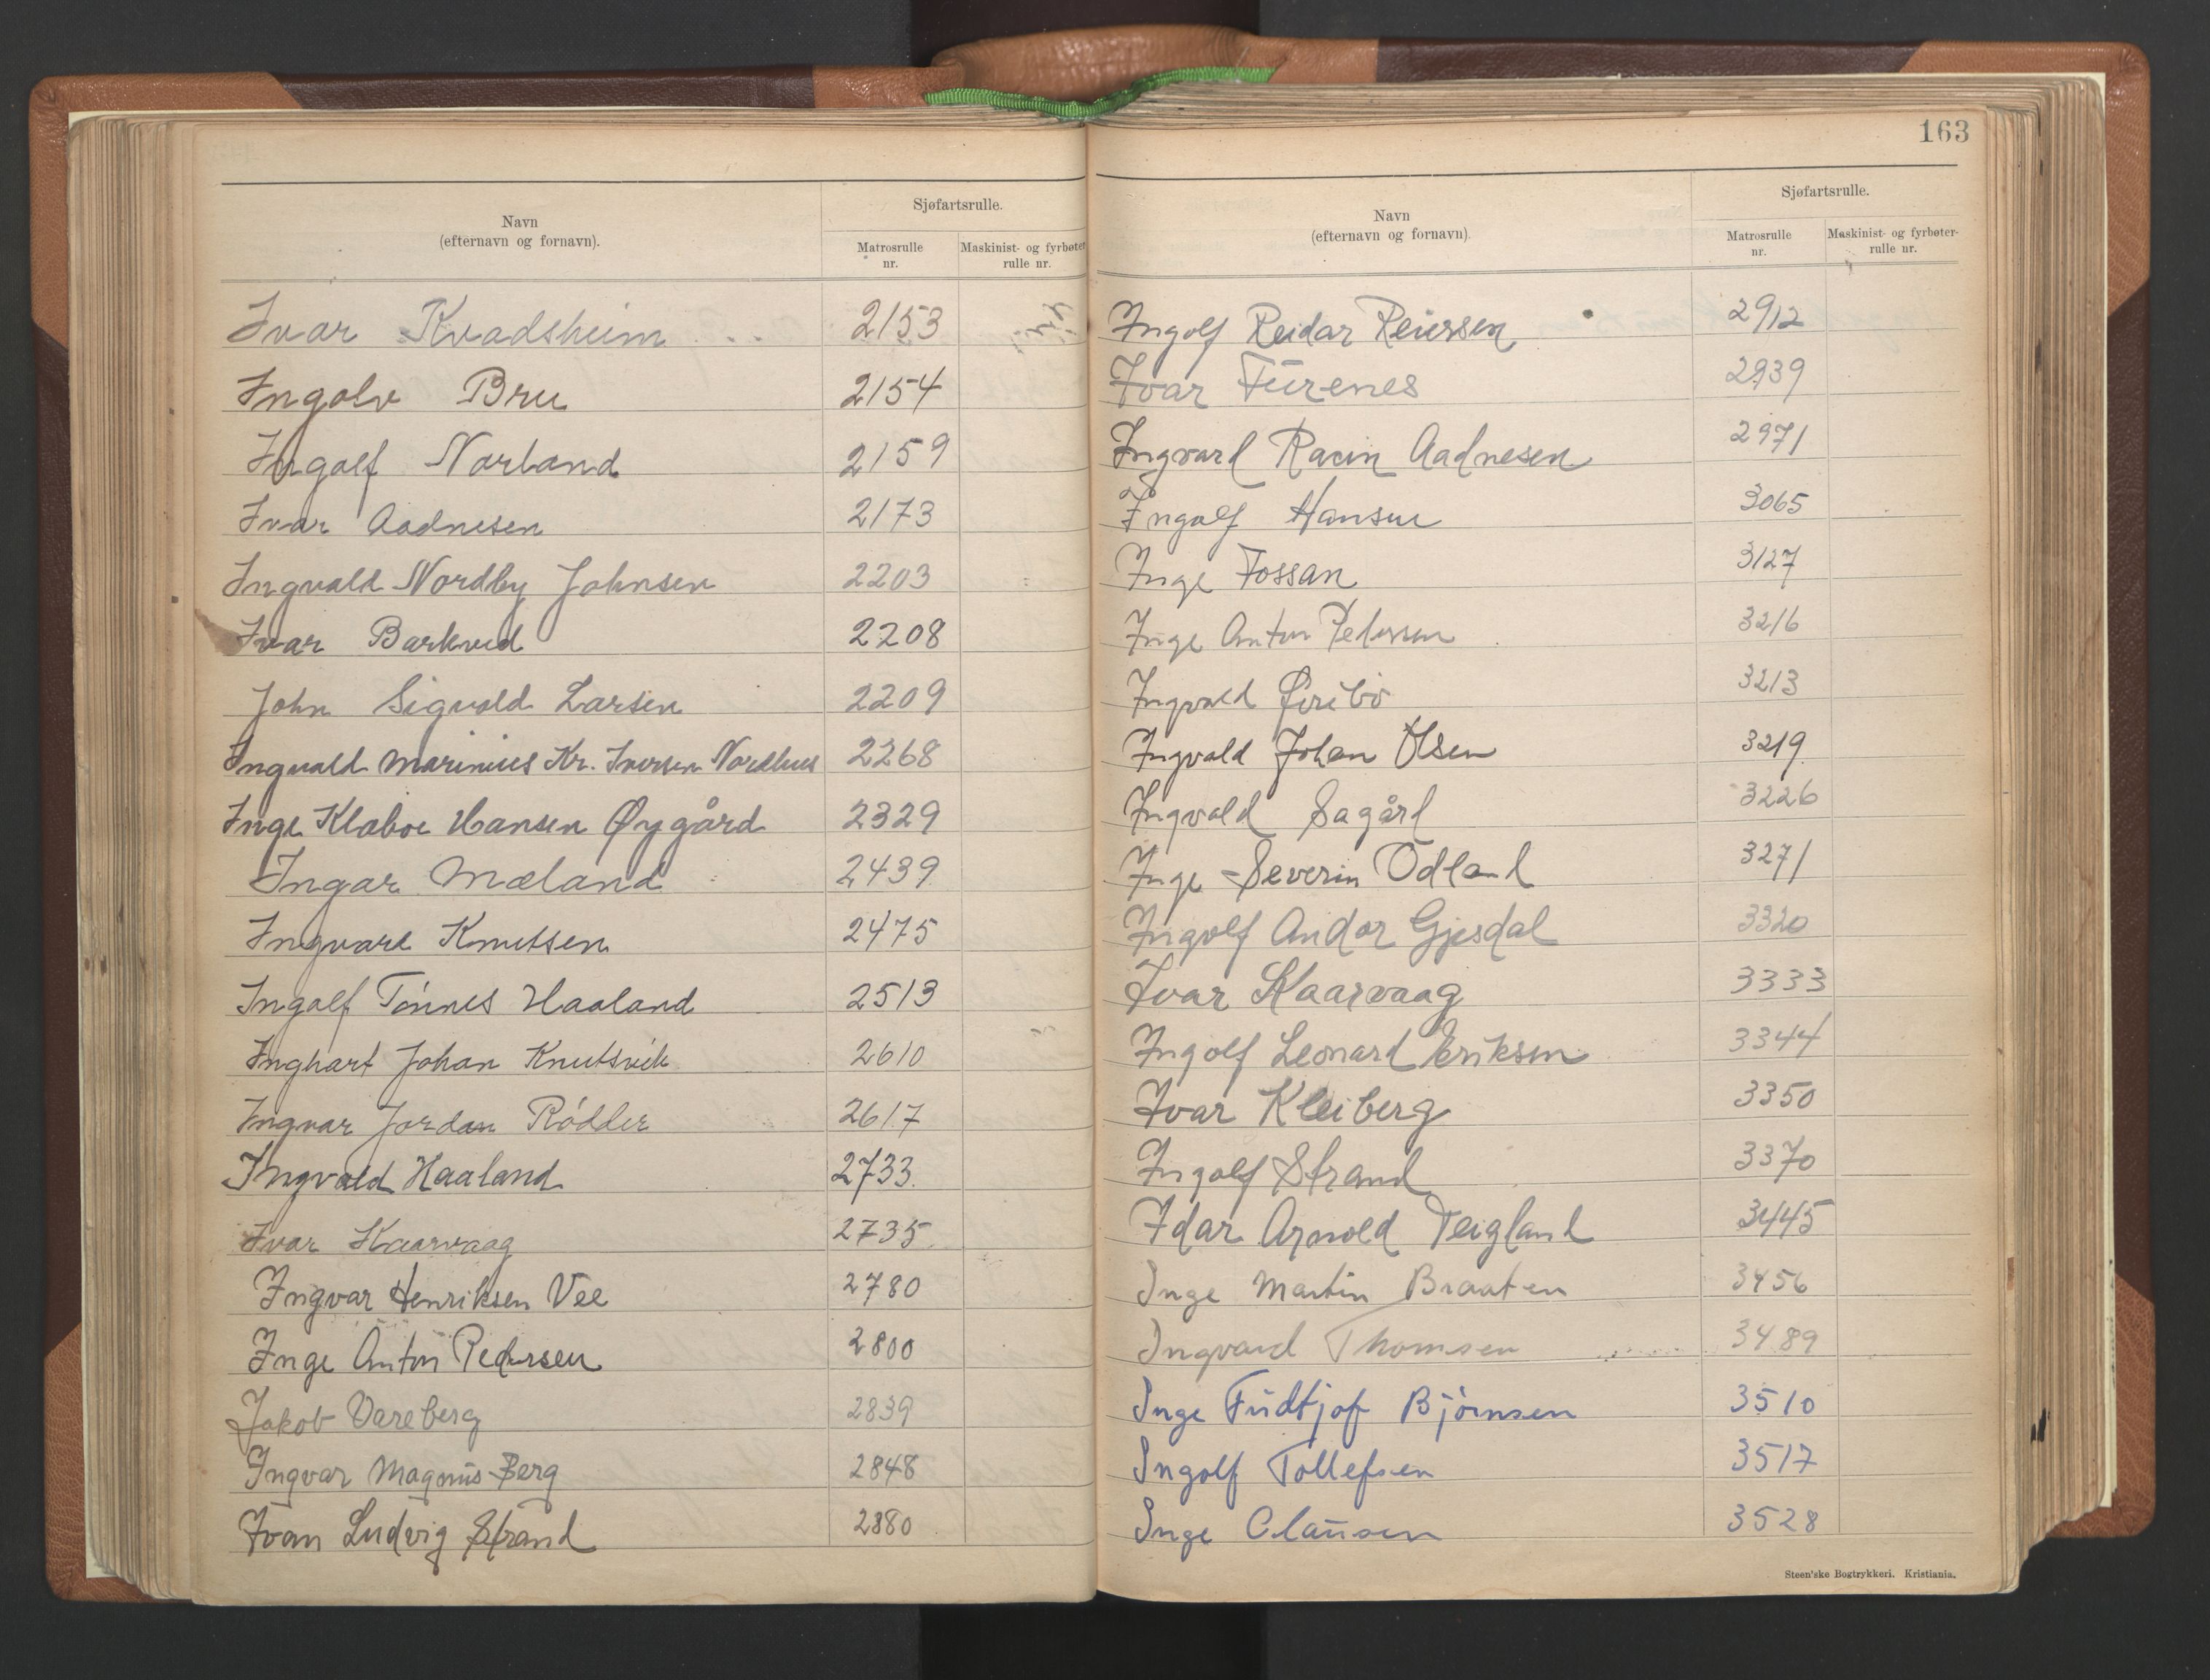 163
Navn
(efternavn og fornavn).
Sjøfartsrulle.
Matrosrulle
nr.
Maskinist- og fyrbøter
rulle nr.
Ivar Kvadsheim 2153
Ingolv Bru 2154
Ingolf Norland 2159
Ivar Aadnesen 2173
Ingvald Nordby Johnsen 2203
Ivar Barkved 2208
John Sigvald Larsen 2209
Ingvald Marinius Kr. Iversen Nordhus 2268
Inge Klaboe Hansen Øygård 2329
Ingar Mæland 2439
Ingvard Knutsen 2475
Ingolf Tønnes Haaland 2513
Inghart Johan Knutsvik 2610
Ingvar Jordan Rødder 2617
Ingvald Haaland 2733
Ivar Kaarvaag 2735
Ingvar Henriksen Vee 2780
Inge Anton Pedersen 2800
Jakob Vareberg 2839
Ingvar Magnus Berg 2848
Ivan Ludvig Strand 2880
Navn
(efternavn og fornavn).
Sjøfartsrulle.
Matrosrulle
nr.
Maskinist- og fyrbøter-
rulle nr.
Ingolf Reidar Reiersen 2912
Ivar Furenes 2939
Ingvard Aadnesen 2971
Ingolf Hansen 3065
Inge Fossan 3127
Inge Anton Pedersen 3216
Ingvald 3213
Ingvald Johan Olsen 3219
Ingvald Sagård 3226
Inge Severin Ødland 3271
Ingolf Andor Gjesdal 3320
Ivar Kaarvaag 3333
Ingolf Leonard Eriksen 3344
Ivar Kleiberg 3350
Ingolf Strand 3370
Idar Arnold Teigland 3445
Inge Martin Braaten 3456
Ingvard Thomsen 3489
Inge Fridtjof Bjørnsen 3510
Ingolf Tollefsen 3517
Inge Clausen 3528
Steen'ske Bogtrykkeri. Kristiania.